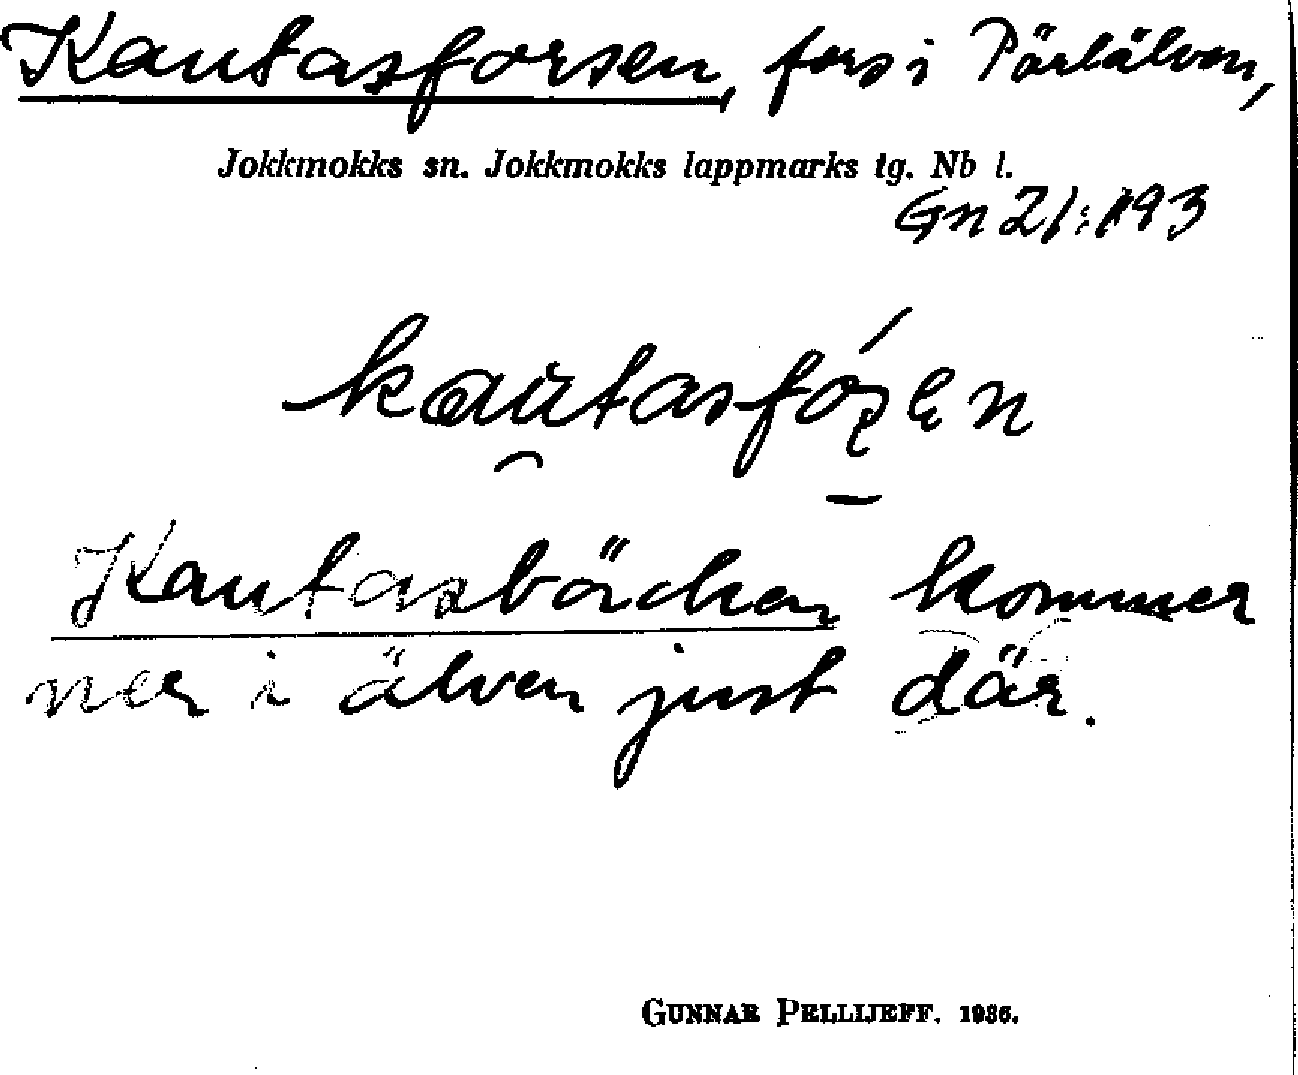 Kautasforsen, fors i Pärlälven,
Jokkmokks sn. Jokkmokks lappmarks tg. Nb l.
Gn 21:193
Kautasbäcken kommer
ner i älven just där.
GUNNAR PELLIJEFF. 1936.